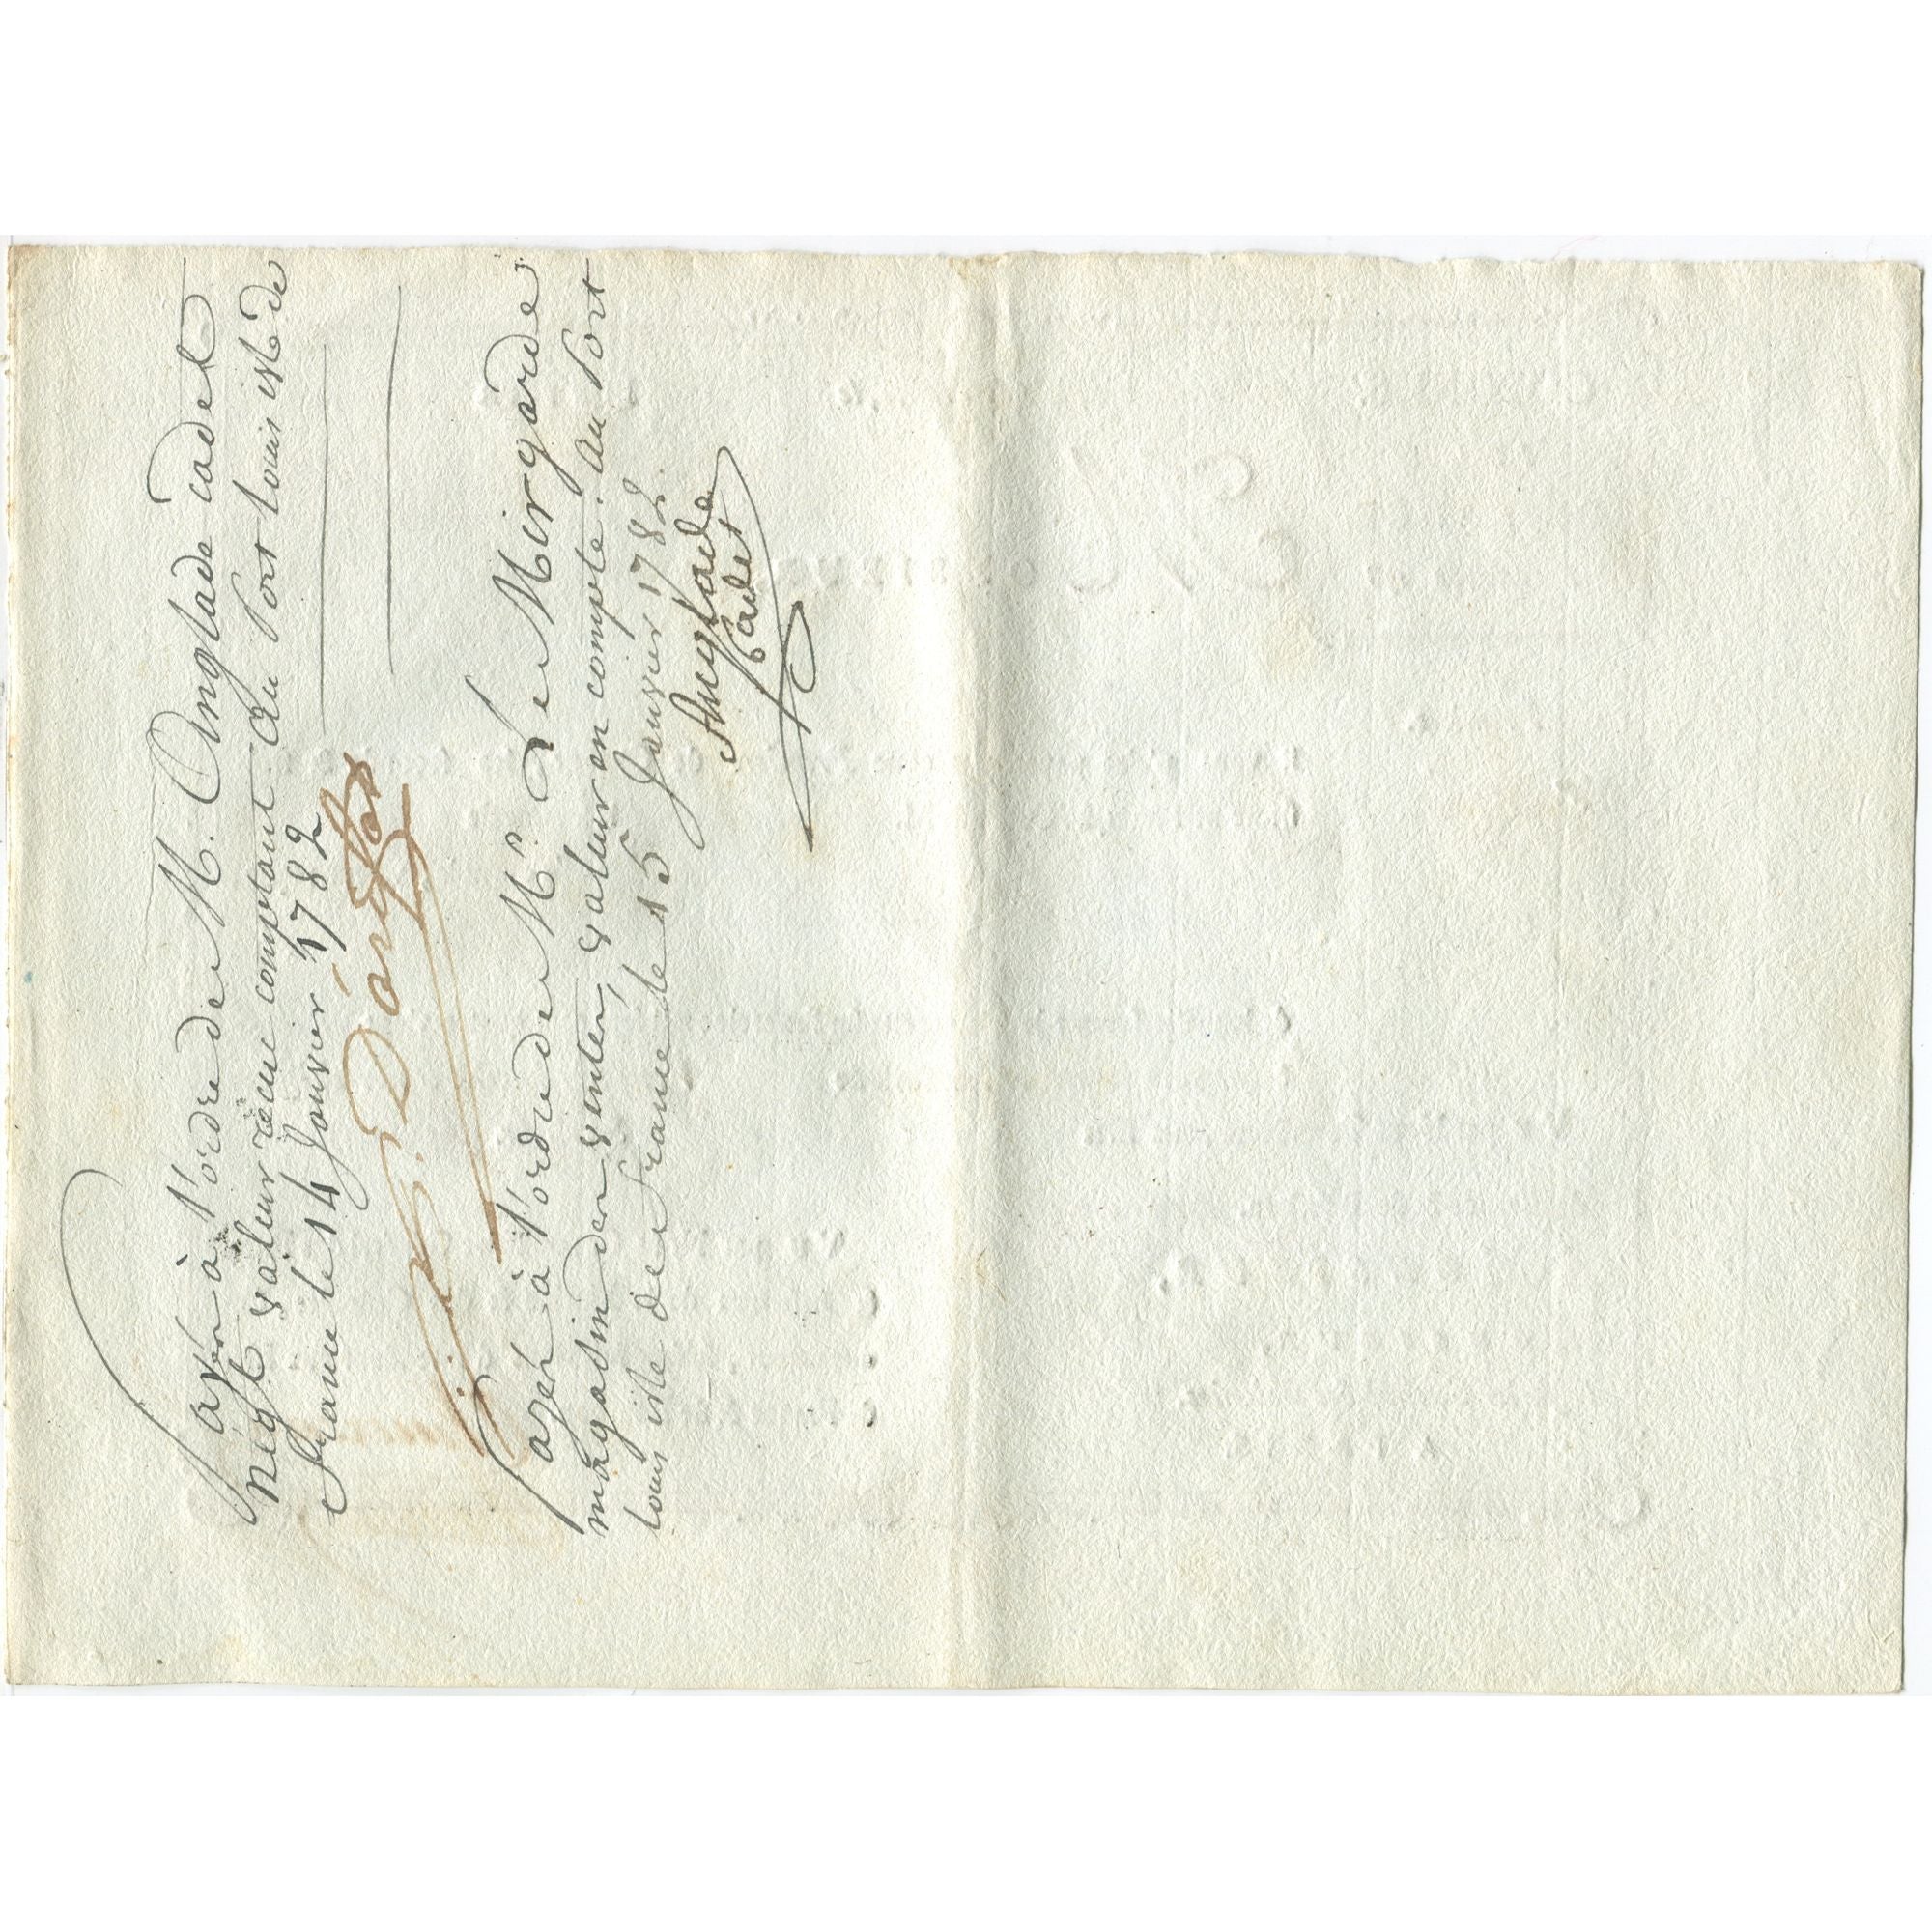 Payéz à l'ordre de M. Anglade cadet
négt valeur recue comptant. Au Port Louis isle de
france le 14 Janvier 1782
Payéz à l'ordre de Mr. Le Mirgarde
magasin des ventes, valeur en compte. au Port
Louis isle de france le 15 Janvier 1782.
Anglade
Cadet